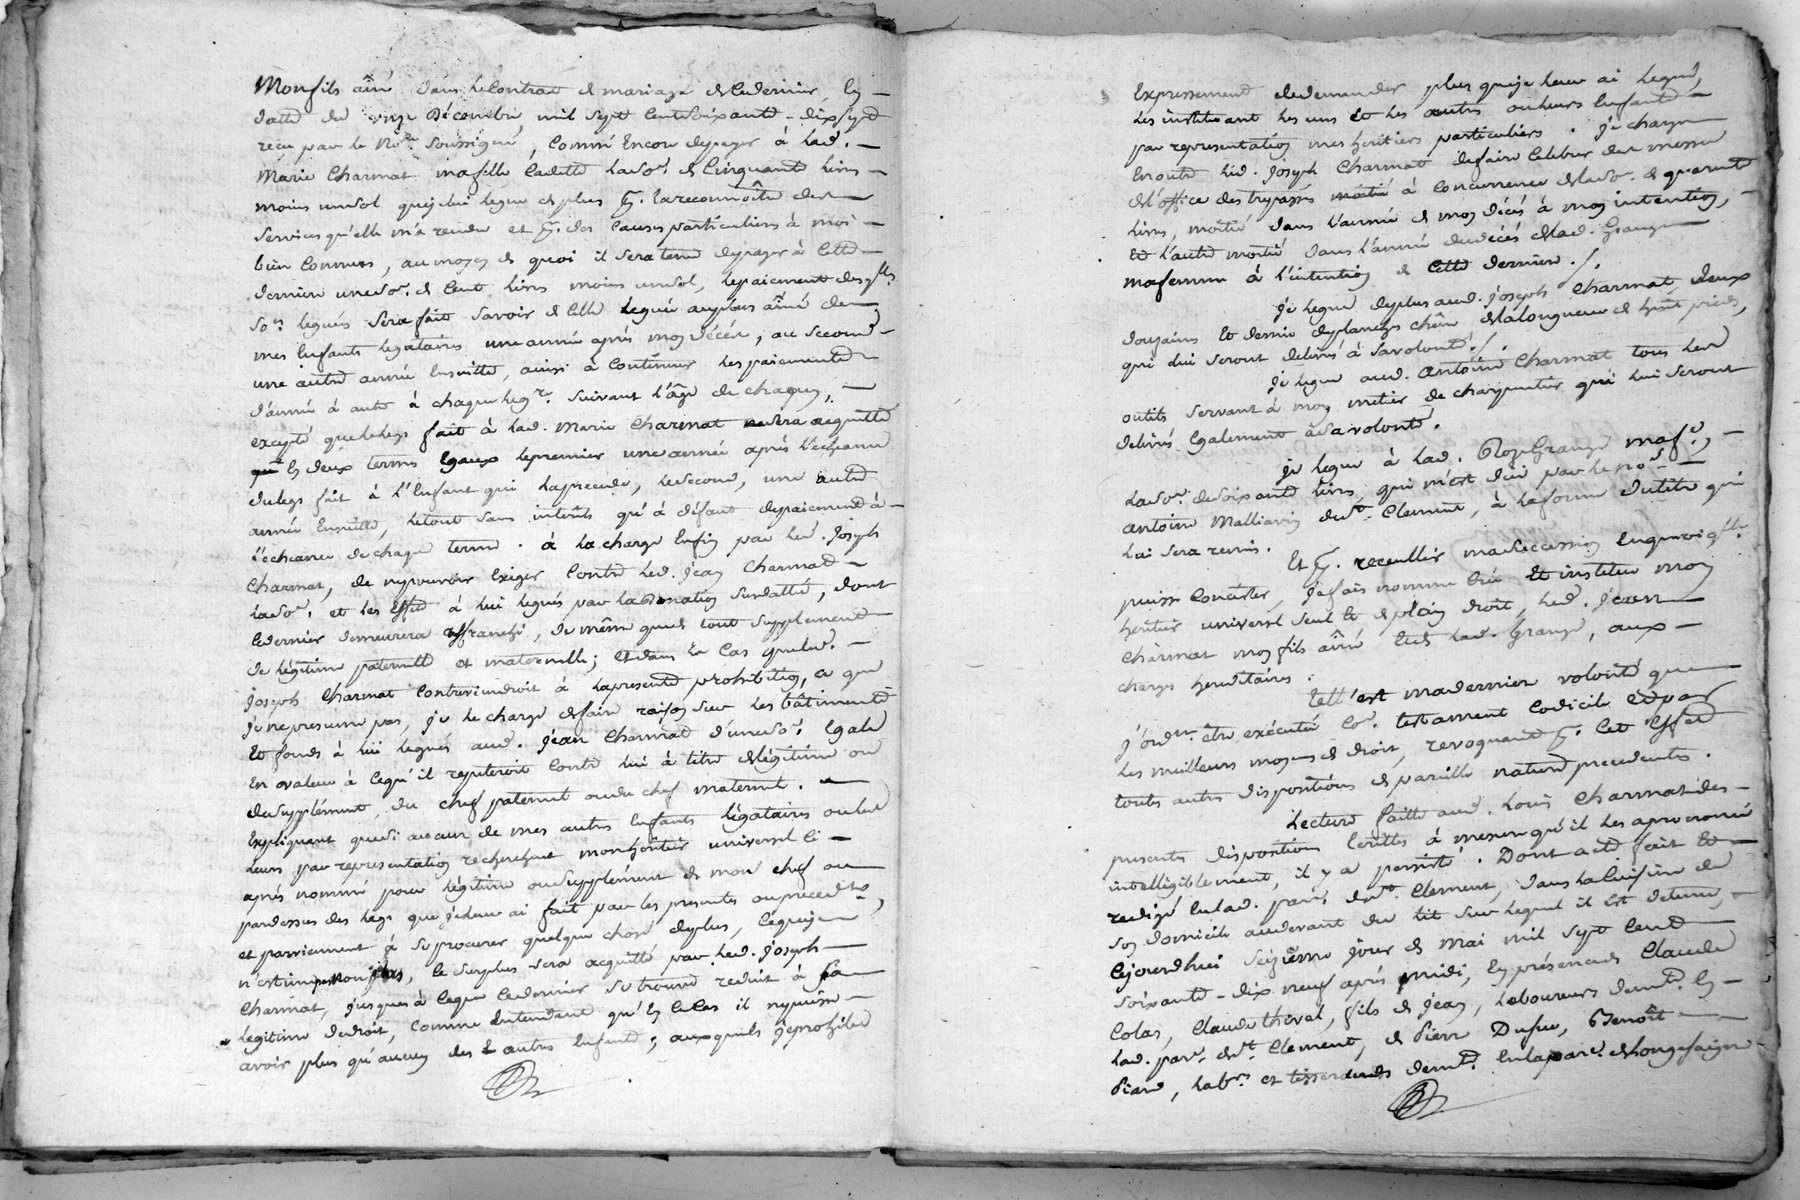 Mon fils aîné dans le Contrat de mariage de ce dernier, En
datte du onze Décembre mil sept Cent Soixante-dix sept
reçu par le No.re Soussigné, Comme Encore de payer à lad.
Marie Charmat ma fille Cadette la So.e de Cinquante livres
moins un sol que je lui legue de plus pr. la reconnoître des
services qu'elle m'a rendu et pr. des Causes particulieres à moi
bien Connues, au moyen de quoi il sera tenu de payer à Cette
derniere une So.e de Cent livres moins un sol, le paiement des
So.es leguées sera fait savoir de Celle leguée au plus aîné de
mes Enfants légataires une année après mon décès, au second
une autre année Ensuitte, ainsi à Continuer les paiements
d'année à autre à chaque leg.re suivant l'âge de chacun,
excepté que le legs fait à lad. Marie Charmat sera acquitté
En deux termes Egaux le premier une année après l'échéance
du legs fait à l'Enfant qui la precede, le second, une autre
année Ensuitte, le tout sans intérêts qu'à défaut de paiement à
l'écheance de chaque terme. à la charge Enfin par led. Joseph
Charmat, de ne pouvoir Exiger Contre led. Jean Charmat
la So.e et les Effets à lui legués par la Donation susdattée, dont
Ce dernier demeurera affranchi, de même que de tout supplement
de légitime paternelle et maternelle; Et dans le Cas que led.
Joseph Charmat Contreviendroit à la presente prohibition, ce que
Je ne presume pas, je le charge de faire raison sur les bâtiments
Et fonds à lui legués aud. Jean Charmat d'une So.e Egale
En valeur à Ce qu'il repeteroit Contre lui à titre de légitime ou
de supplément, du chef paternel ou du chef maternel.
Expliquant que si aucun de mes autres Enfants légataires ou les
leurs par representation recherchent mon héritier universel Ci
après nommé pour légitime ou supplément de mon chef au
pardessus des legs que je leur ai fait par les presentes ou precedte.,
et parviennent à se procurer quelque chose de plus, Ce que je
n'estime pas, le surplus sera acquitté par led. Joseph
Charmat, jusques à Ce que Ce dernier se trouve reduit à sa
légitime de droit, Comme Entendant qu'En Ce Cas il ne puisse
avoir plus qu'aucun des autres Enfants; auxquels je prohibe
Expressement de demander plus que je leur ai legué,
les instituant les uns Et les autres ou leurs Enfants
par representation mes héritiers particuliers. Je charge
En outre led. Joseph Charmat de faire Celebrer des messes
de l'office des trepassés à Concurrence de la So. de quarante
livres, moitié dans l'année de mon décès à mon intention,
Et l'autre moitié dans l'année du décès de lad. Grange
ma femme à l'intention de Cette derniere./.
Je legue de plus aud. Joseph Charmat, deux
douzaines Et demie de planches chêne de la longueur de huit pieds,
qui lui seront delivrées à sa volonté./.
Je legue aud. Antoine Charmat tous les
outils servant à mon métier de charpentier qui lui seront
delivrés Egalement à sa volonté.
Je legue à lad. Roze Grange ma fe.,
la So.e de soixante livres, qui m'est dûe par le no.é
Antoine Malliavin de St. Clement, à la forme du titre qui
lui sera remis.
Et pr. recueillir ma Succession En quoi qu'elle
puisse Consister, j'ai fais nomme Crée Et institue mon
heritier universel seul Et de plein droit, led. Jean
Charmat mon fils aîné Et de lad. Grange, aux
charges hereditaires.
telle est ma derniere volonté que
j'ord.ne être exécutée Co.e testament Codicile Et par
les meilleurs moyens de droit, revoquant pr. Cet Effet
toutes autres dispositions de pareille nature precedentes.
Lecture faitte aud. Louis Charmat des
presentes dispositions Ecrittes à mesure qu'il les a prononcé
intelligiblement, il y a persisté. Dont acte fait Et
redigé En lad. par.se de St. Clement, dans la Cuisine de
son domicile audevant du lit sur lequel il Est detenu,
Cejourd'hui seizième jour de mai mil sept Cent
soixante-dix neuf après midi, En présence de Claude
Colas, Claude thivel, fils de Jean, laboureurs demt. En
lad. par. de St. Clement, de Pierre Dufue, Benoît
Piard, labrs. et tisserands demt. En la par. de Longesaigne